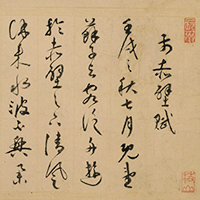 前赤壁賦
壬戌之秋七月既望
蘇子與客泛舟遊
於赤壁之下清風
徐來水波不興舉